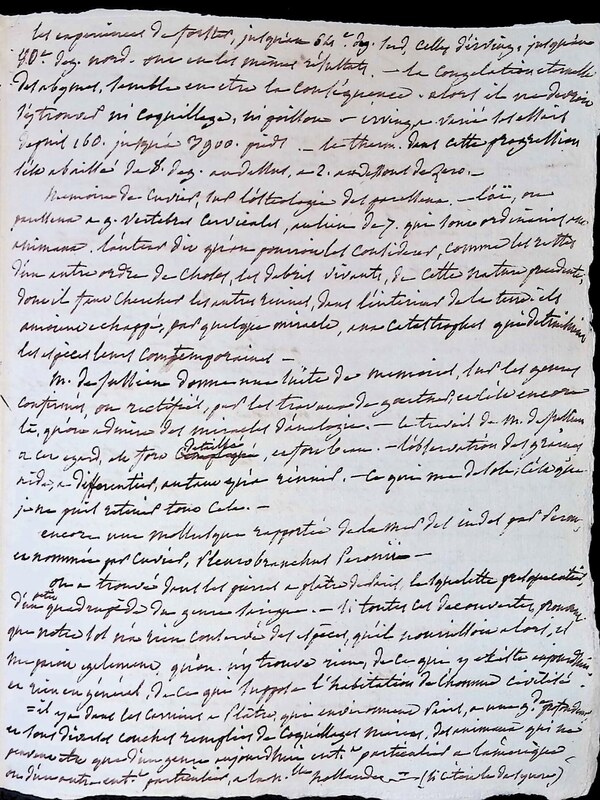 les expériences de forster, jusqu'au 64e. deg. sud, celles d'irving, jusqu'au
80e deg. nord. ont eu les mêmes résultats. — la Congélation éternelle
des abymes, semble en etre la Conséquence. alors il ne devroit
s'y trouver ni coquillage, ni poisson — irving a varié ses essais
depuis 160. jusqu'à 3900. pieds — le therm. dans cette progression
s'est abaissé de 8. deg. au dessus, a 2. au dessous de zero. —
Memoire de Cuvier sur l'osteologie des paresseux. — l'aï, ou
paresseux a 9. vertebres cervicales, au lieu de 7. qui sont ordinaires aux
animaux. l'auteur dit qu'on pourroit les considerer, comme les restes
d'un autre ordre de choses, les debris vivants, de cette nature precedente,
dont il faut chercher les autres ruines, dans l'interieur de la terre. ils
auroient echappé, par quelque miracle, aux Catastrophes qui detruisirent
les especes leurs contemporaines —
M. de Jussieu donne une suite de memoires, sur les genres
confirmés, ou rectifiés, par les travaux de gaertner, c'est encore
là, qu'on admire des miracles d'analogie. — le travail de M. de Jussieu
a cet egard, est fort detaillé, et fort beau. — l'observation des graines
aide, a differentier, autant qu'a réunir. — Ce qui me desole, c'est que
je ne puis retenir tout cela. —
encore une mollusque rapportée de la mer des indes par Peron,
et nommée par Cuvier, Pleurobranchus Peronii —
on a trouvé dans les pierres a platre de Paris, le squelette presque entier,
d'un autre quadrupède du genre sarigue. — si toutes ces decouvertes, prouvent
que notre sol n'a rien conservé des espèces, qu'il nourrissoit alors, il
me paroit egalement qu'on n'y trouve rien, de ce qui y existe aujourd'hui
et rien en général, de ce qui suppose l'habitation de l'homme civilisé.
= il y a dans les carrieres a Platre, qui environnent Paris, a une gde profondeur
et sous diverses couches remplies de Coquillages marins, des animaux qui ne
peuvent etre que d'un genre aujourd'hui entt. particulier a l'amerique
ou d'un autre entt. particulier, a la nlle hollande =